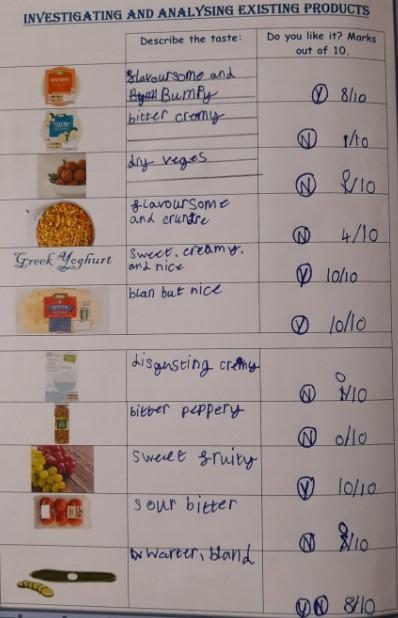 INVESTIGATING AND ANALYSING EXISTING PRODUCTS
Describe the taste:
Do you like it? Marks
out of 10.
flavoursome and
Bumpy
Y 8/10
bitter cremy
N 1/10
dry veges
N /10
flavoursome
and cruntre
N 4/10
Greek Yoghurt
sweet, creamy,
and nice
Y 10/10
blan but nice
Y 10/10
disgusting cremy
N 0/10
bitter peppery
N 0/10
sweet fruity
Y 10/10
sour bitter
N /10
warter, bland
Y N 8/10